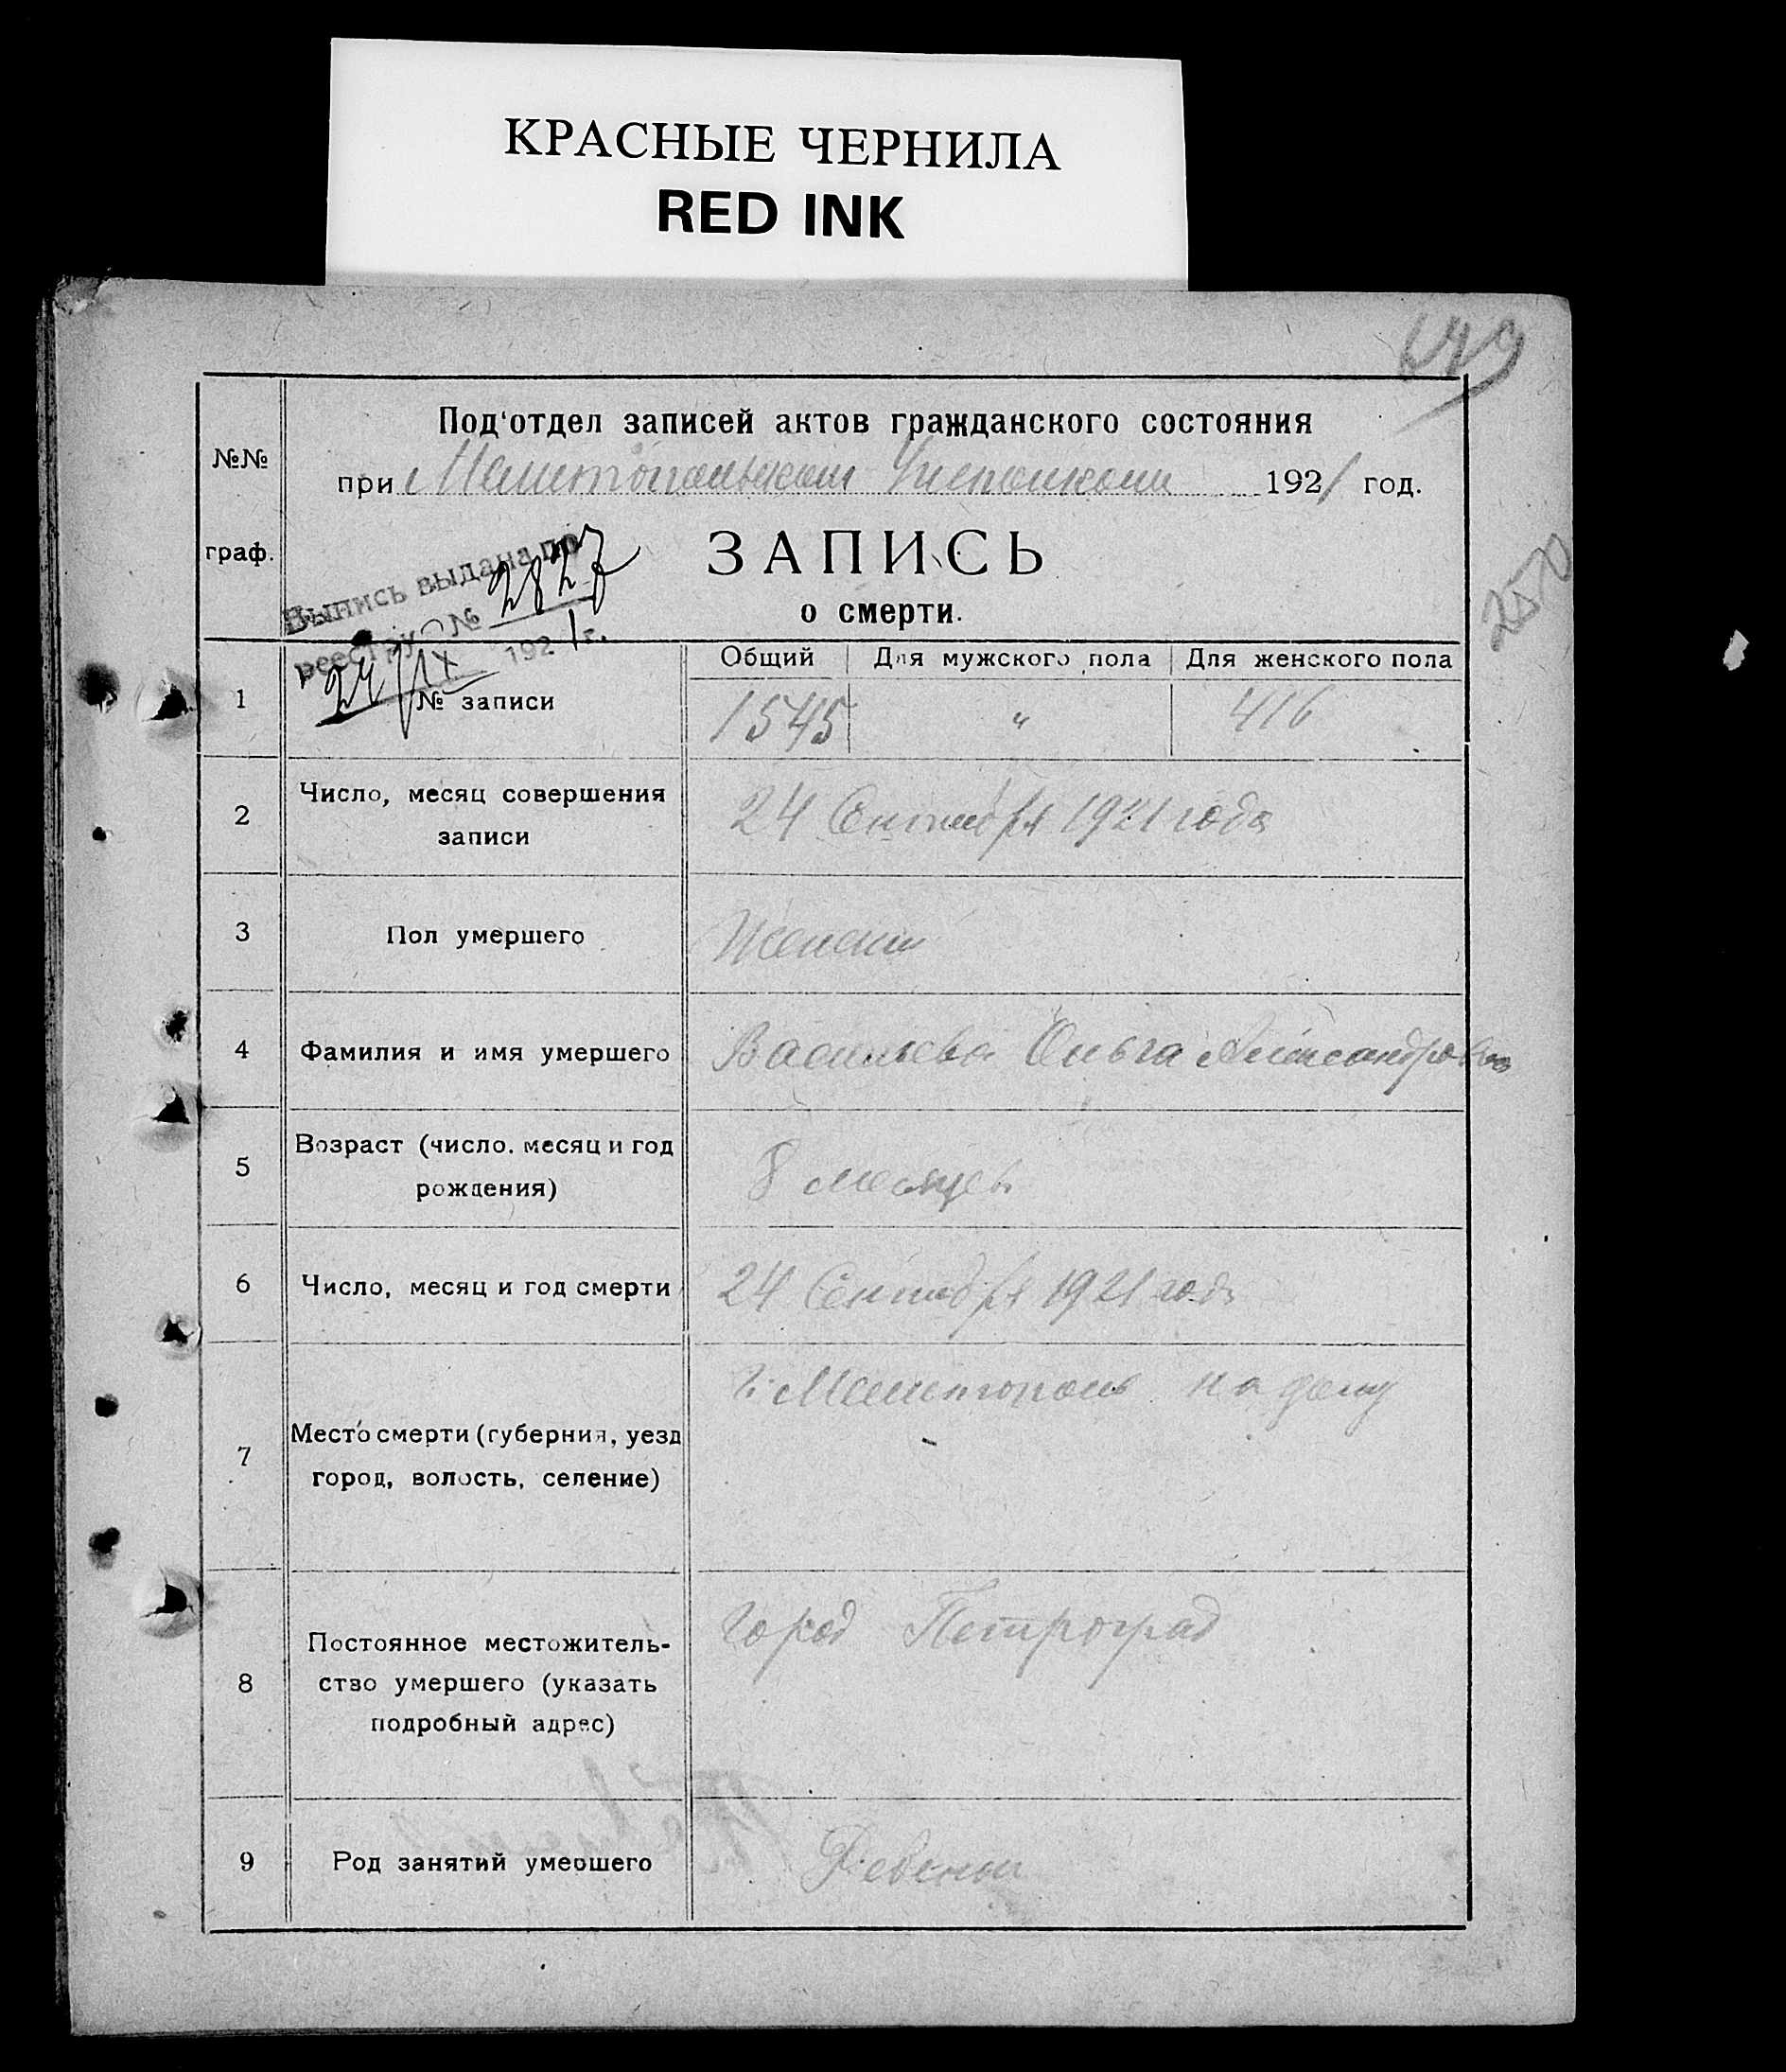 КРАСНЫЕ ЧЕРНИЛА
RED INK
Под'отдел записей актов гражданского состояния
№№
при Мелитопольском Уисполкоме 1921 год.
граф.
ЗАПИСЬ
о смерти.
Выпись выдана по
реестру № 2827
24/IX 1921 г.
Общий Для мужского пола Для женского пола
1 № записи 1545 " 416
2 Число, месяц совершения
записи
24 Сентября 1921 года
3 Пол умершего Женский
4 Фамилия и имя умершего Васильева Ольга Александровна
5 Возраст (число, месяц и год
рождения)
8 месяцев
6 Число, месяц и год смерти 24 Сентября 1921 года
7 Место смерти (губерния, уезд
город, волость, селение)
г. Мелитополь на дому
8 Постоянное местожитель-
ство умершего (указать
подробный адрес)
город Петроград
9 Род занятий умершего Ребенок